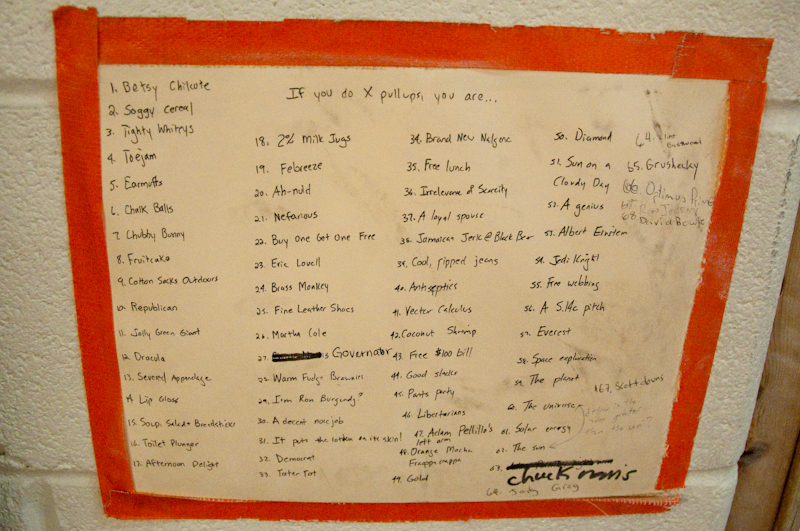 If you do X pullups, you are...
1. Betsy Chilcote
2. Soggy Cereal
3. Tighty Whiteys
4. Toejam
5. Earmuffs
6. Chalk Balls
7. Chubby Bunny
8. Fruitcake
9. Cotton Socks Outdoors
10. Republican
11. Jolly Green Giant
12. Dracula
13. Severed Appendage
14. Lip Gloss
15. Soup, Salad & Breadsticks
16. Toilet Plunger
17. Afternoon Delight
18. 2% Milk Jugs
19. Febreeze
20. Ah-nuld
21. Nefarious
22. Buy One Get One Free
23. Eric Lovell
24. Brass Monkey
25. Fine Leather Shoes
26. Martha Cole
27. Governator
28. Warm Fudge Brownies
29. I'm Ron Burgundy?
30. A decent nose job
31. It puts the lotion on its skin!
32. Democrat
33. Tater Tot
34. Brand New Nalgene
35. Free lunch
36. Irrelevance of Scarcity
37. A loyal spouse
38. Jamaican Jerk @ Black Bear
39. Cool, ripped jeans
40. Antiseptics
41. Vector Calculus
42. Coconut Shrimp
43. Free $100 bill
44. Good slacks
45. Pants party
46. Libertarians
47. Adam Pellillo's
left arm
48. Orange Mocha
Frappuccappa
49. Gold
50. Diamond
51. Sun on a
Cloudy Day
52. A genius
53. Albert Einstein
54. Jedi Knight
55. Free webbing
56. A 5.14c pitch
57. Everest
58. Space exploration
59. The planet
60. The universe
61. Solar energy
62. The sun
63.
chuck norris
68. Gary
64.
65. Grushecky
66. Optimus Prime
67.
68. David Bowie
67. Scott downs